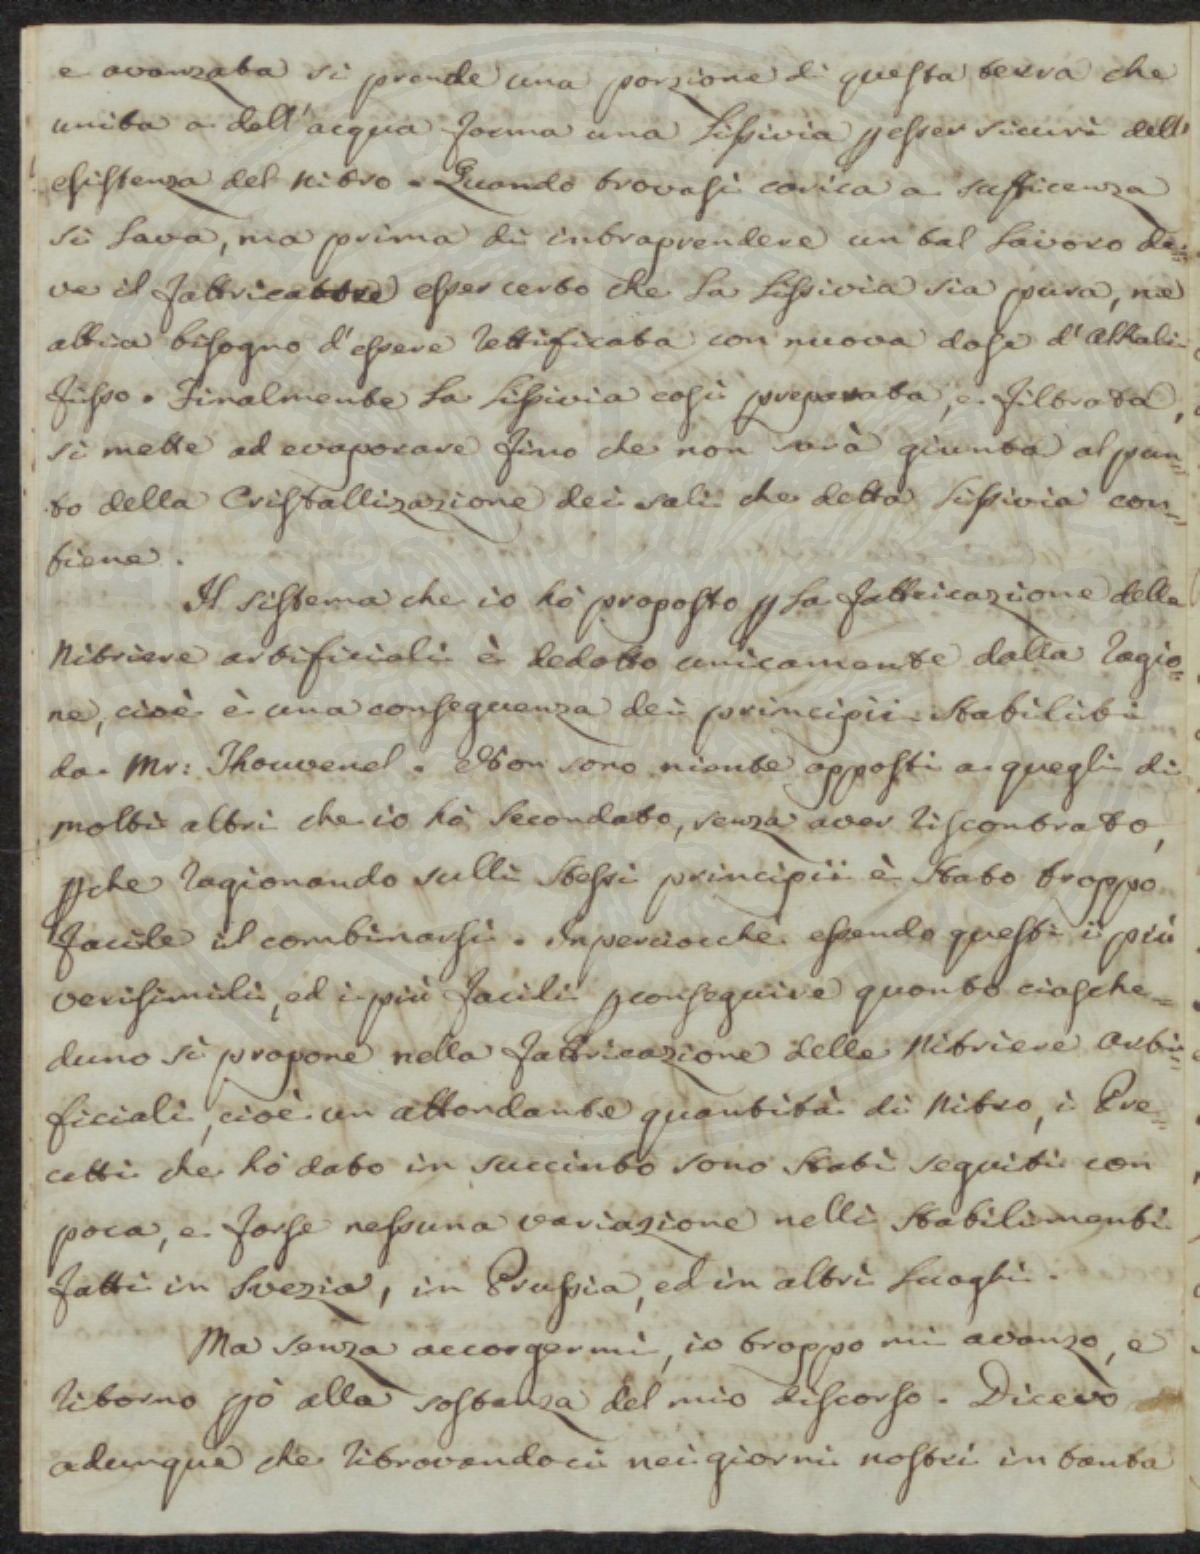 e avanzata si prende una porzione di questa terra che
unita a dell'acqua forma una Lissivia p esser sicuri dell'
esistenza del Nitro. Quando trovasi carica a sufficenza
si Lava, ma prima di intraprendere un tal Lavoro de=
ve il fabbricattore esser certo che La Lissivia sia pura, ne
abbia bisogno d'essere rettificata con nuova dose d'Alkali
fisso. Finalmente La Lissivia così preparata, e filtrata,
si mette ad evaporare fino che non sarà giunta al pun=
to della Cristallizazione dei sali che detta Lissivia con=
tiene.
Il sistema che io hò proposto p La fabbricazione delle
Nitriere artificiali è dedotto unicamente dalla ragio=
ne, cioè è una conseguenza dei principii stabiliti
da Mr: Thouvenel. Non sono niente opposti a quegli di
molti altri che io hò secondato, senza aver riscontrato,
pche ragionando sulli stessi principii è stato troppo
facile il combinarsi. Inperciocchè essendo questi i più
verisimili, ed i più facili p conseguire quanto ciasche=
duno si propone nella fabbricazione delle Nitriere arti=
ficiali, cioè un abbondante quantità di Nitro, i Pre=
cetti che hò dato in succinto sono stati seguiti con
poca, e forse nessuna variazione nelli stabilimenti
fatti in Svezia, in Prussia, ed in altri Luoghi.
Ma senza accorgermi, io troppo mi avanzo, e
ritorno pò alla sostanza del mio discorso. Dicevo
adunque che ritrovandoci nei giorni nostri in tanta